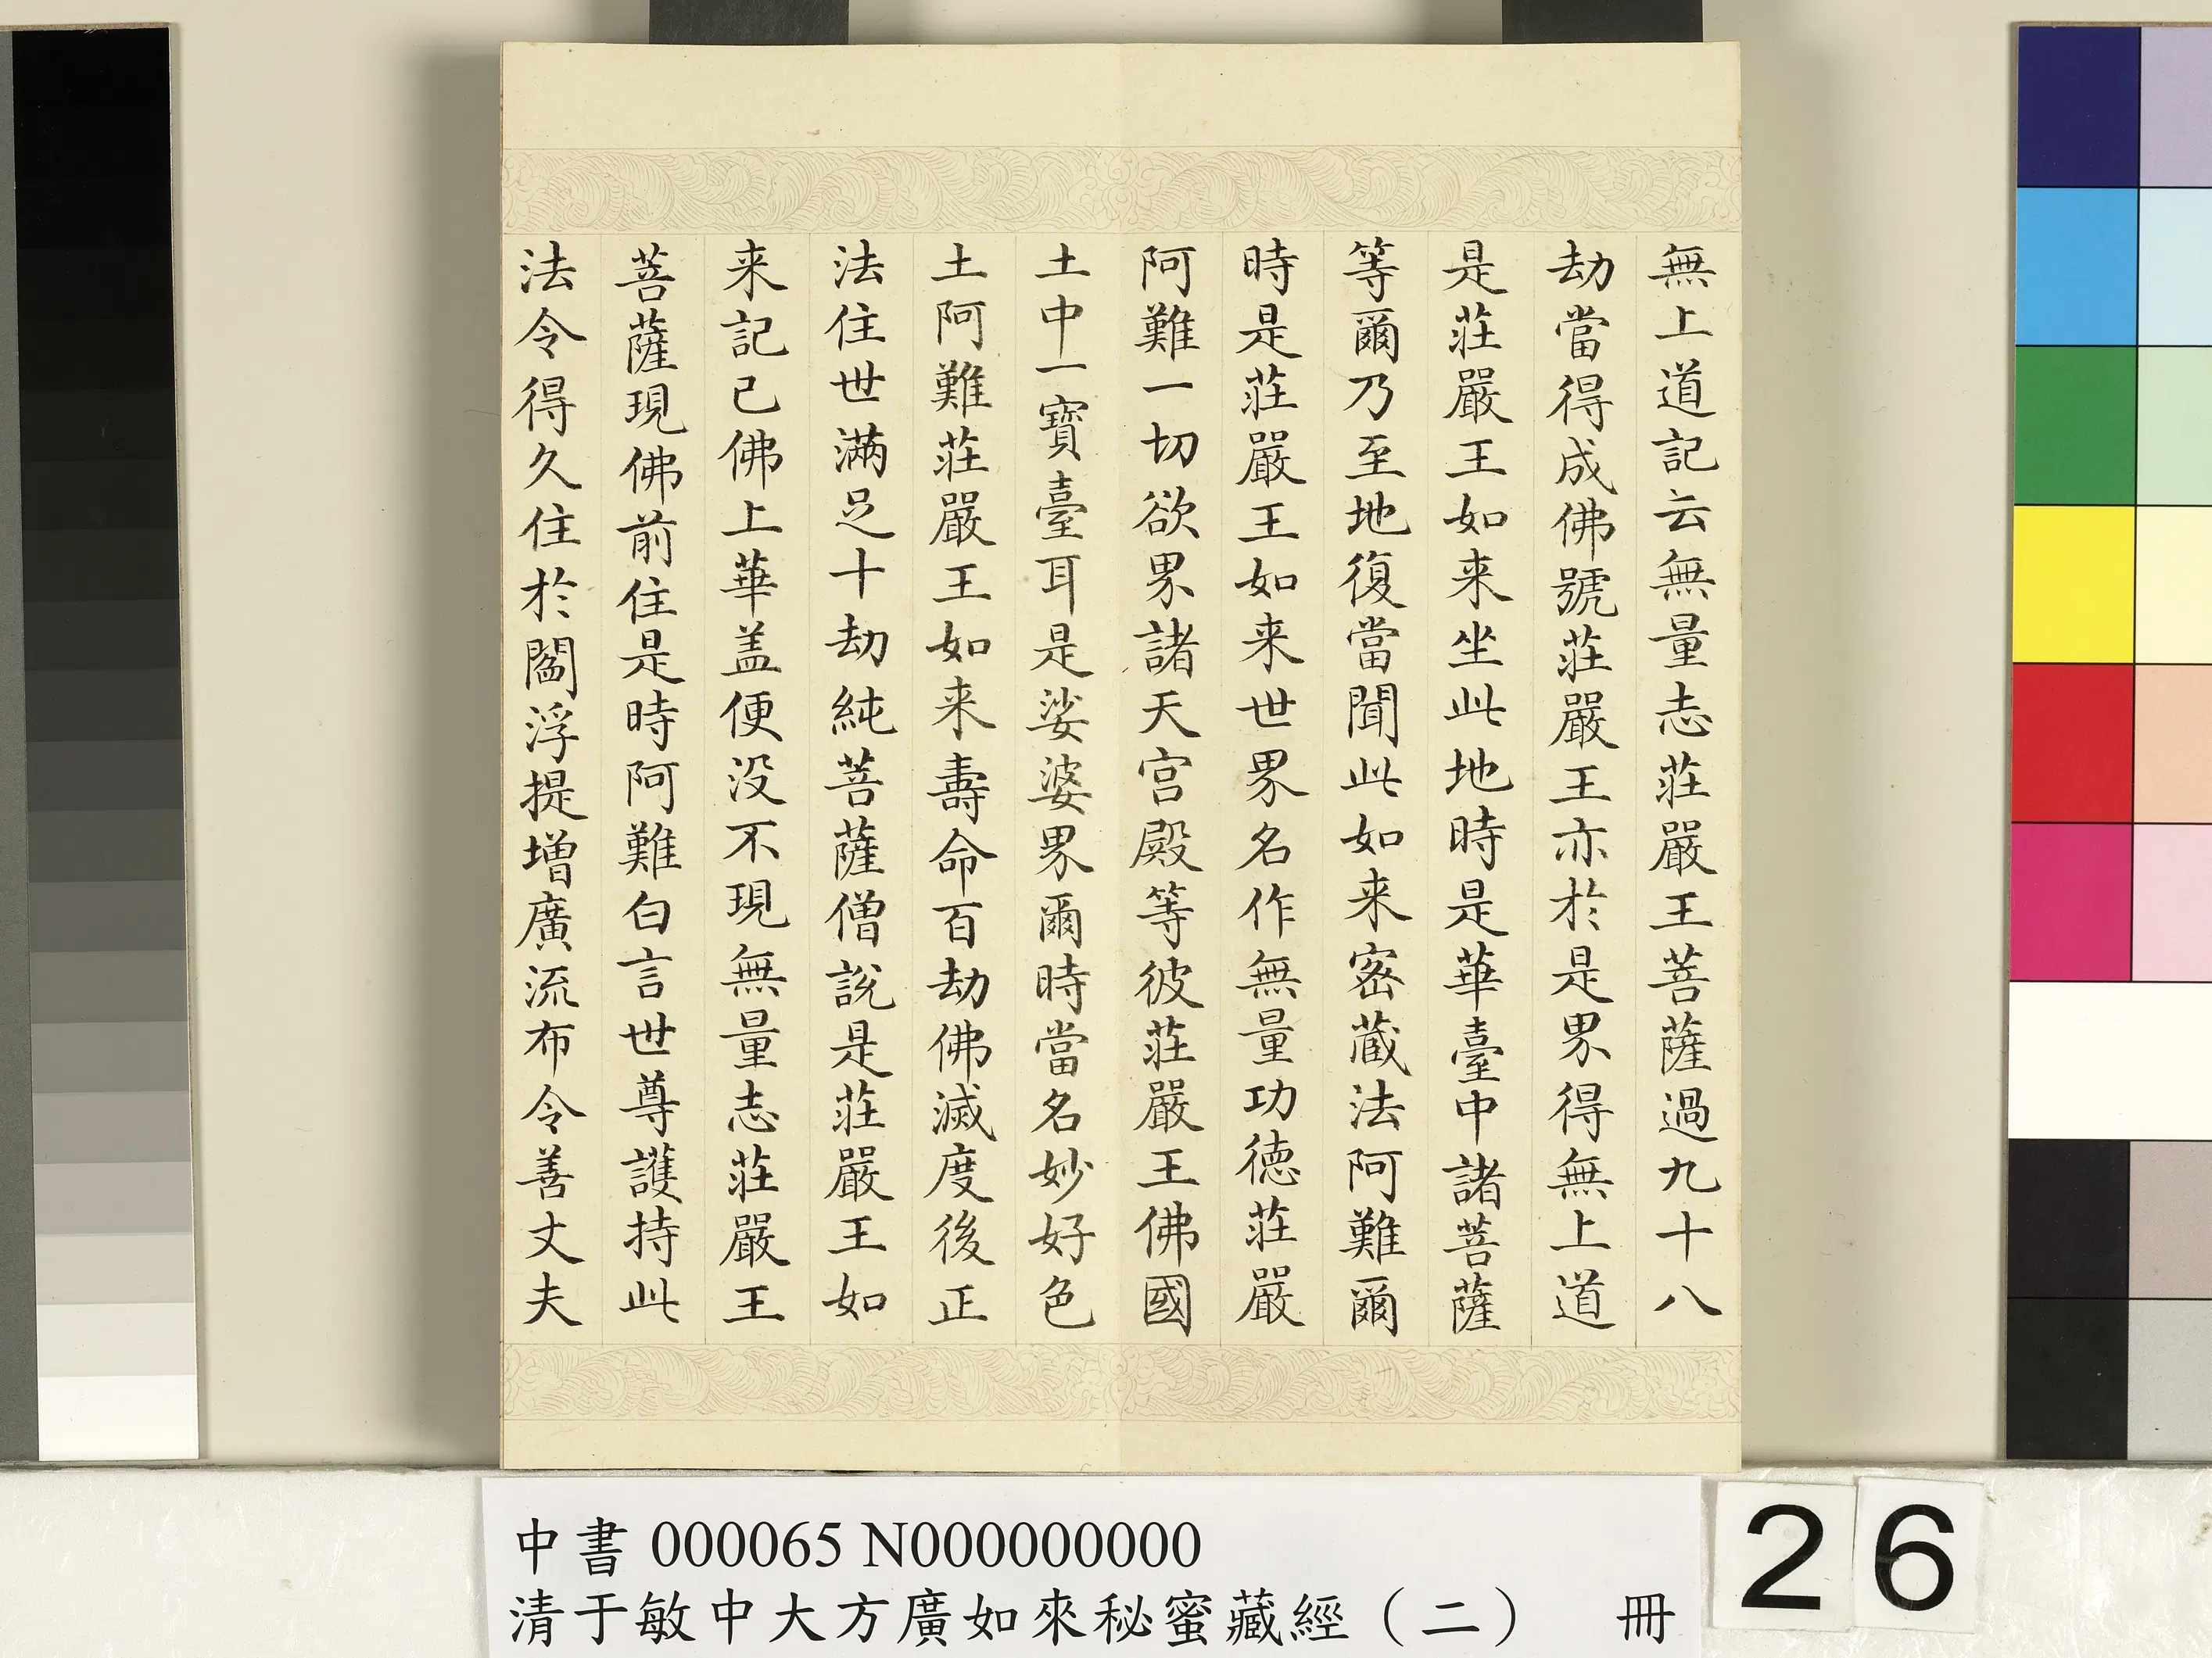 無上道記云無量志莊嚴王菩薩過九十八
劫當得成佛號莊嚴王亦於是界得無上道
是莊嚴王如来坐此地時是華臺中諸菩薩
等爾乃至地復當聞此如来密藏法阿難爾
時是莊嚴王如来世界名作無量功德莊嚴
阿難一切欲界諸天宫殿等彼莊嚴王佛國
土中一寶臺耳是娑婆界爾時當名妙好色
土阿難莊嚴王如来壽命百劫佛滅度後正
法住世滿足十劫純菩薩僧說是莊嚴王如
来記已佛上華盖便没不現無量志莊嚴王
菩薩現佛前住是時阿難白言世尊護持此
法令得久住於閻浮提增廣流布令善丈夫
中書 000065 N000000000
清于敏中大方廣如來秘蜜藏經（二） 冊
26